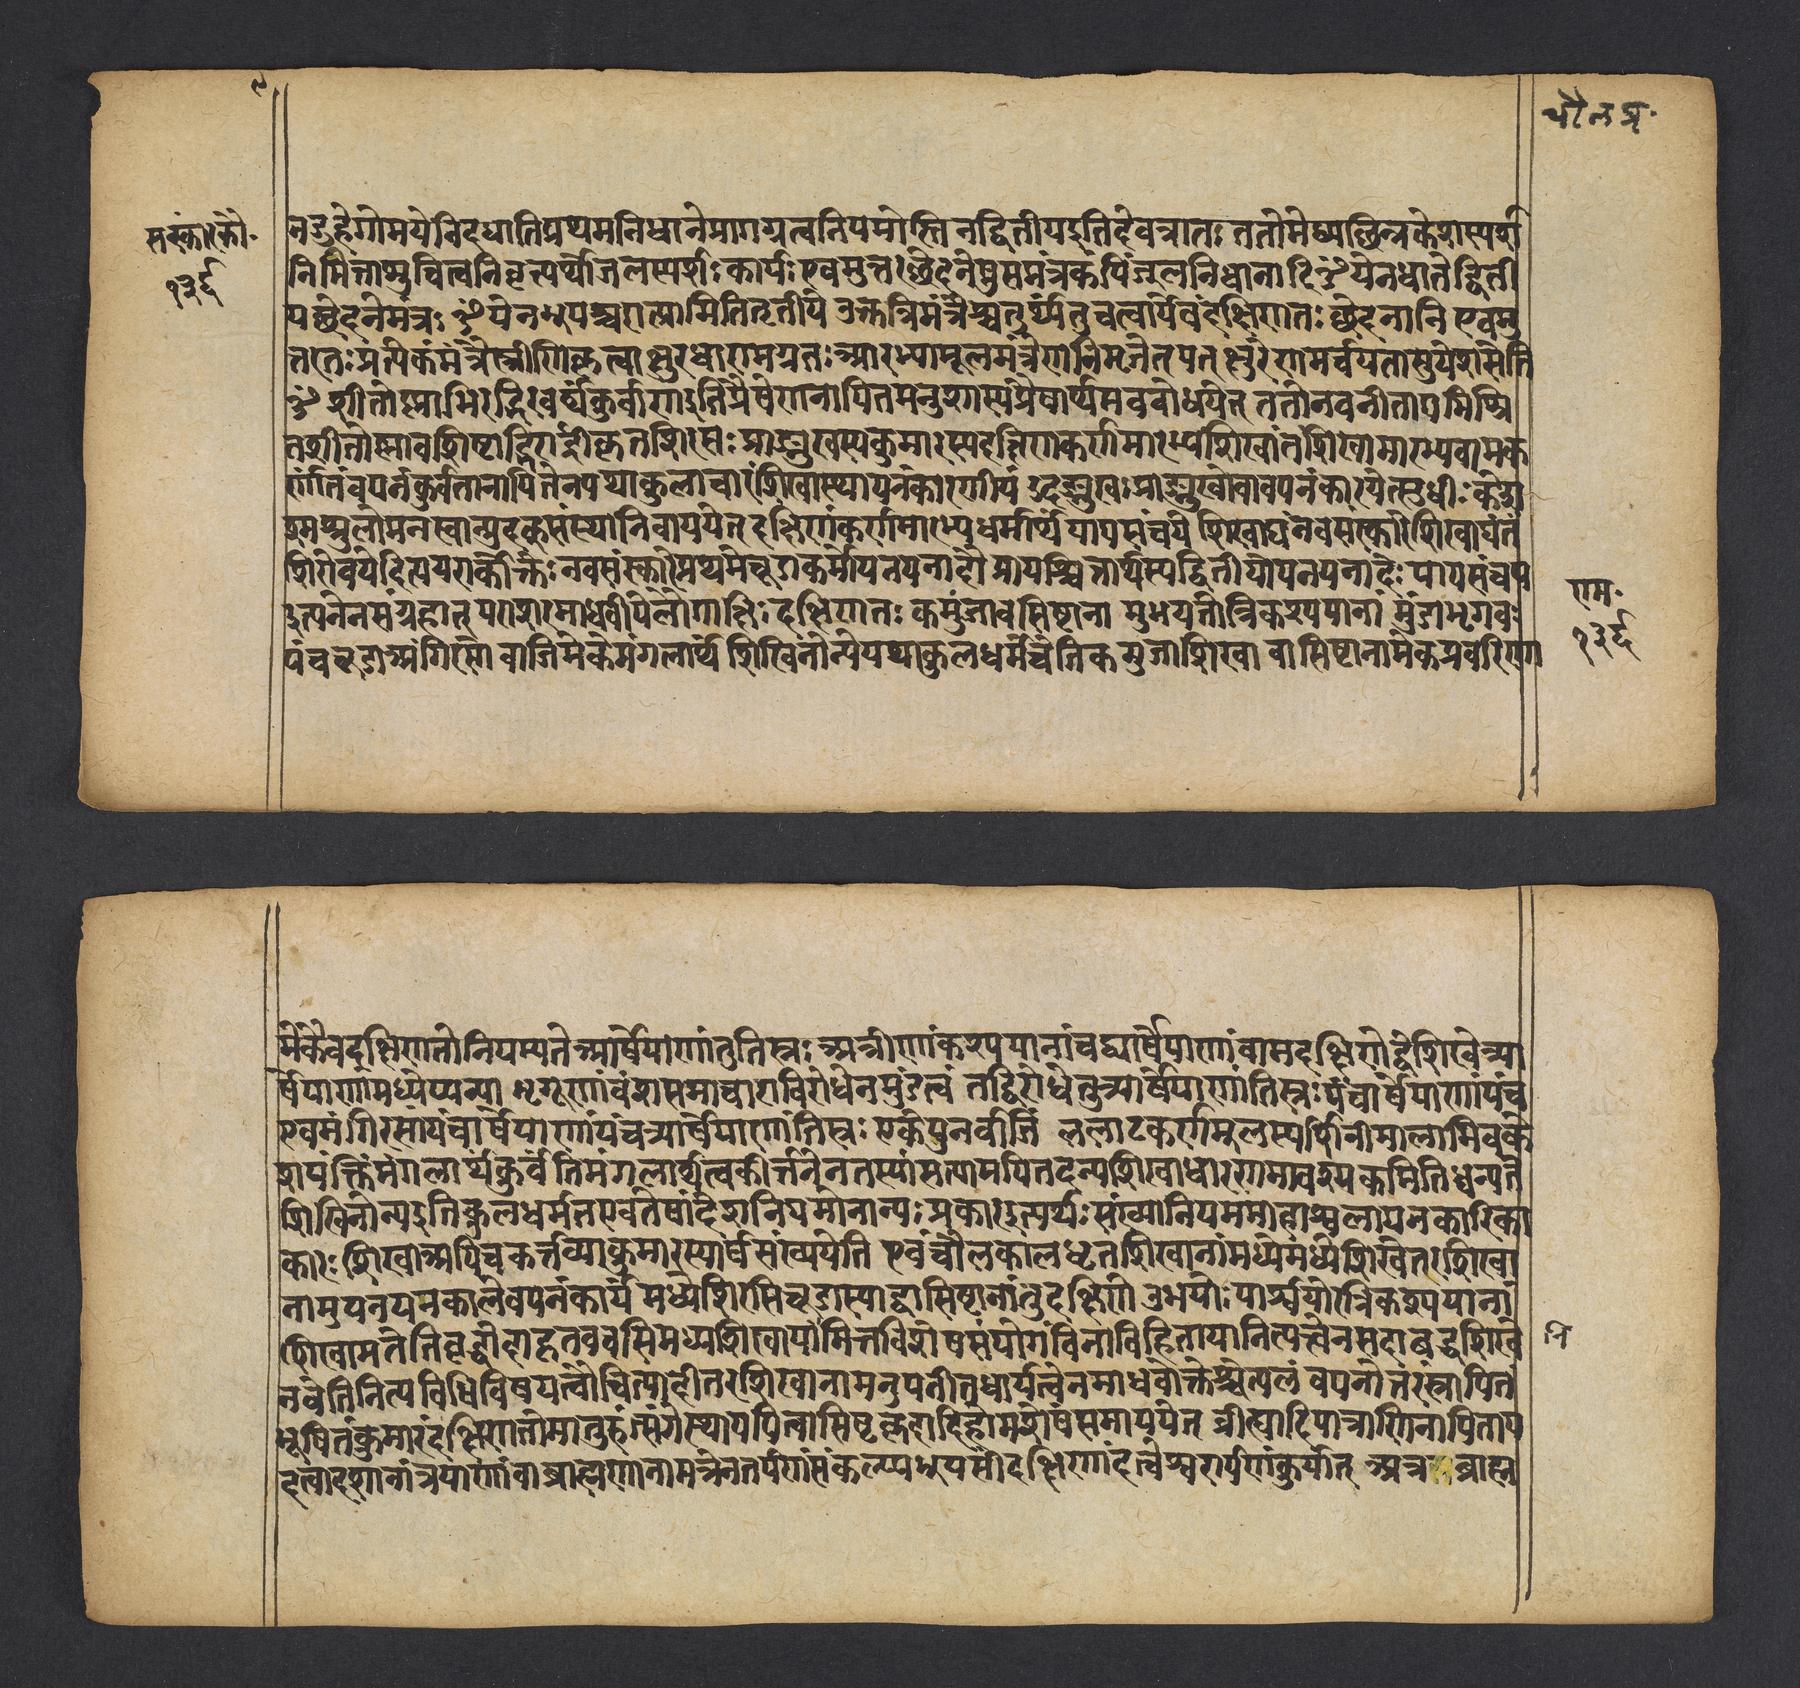 चौलप्र॰
संस्कारकौ॰
१३६
नडुहेगोमयेनिदधातिप्रथमनिधानेप्रागग्रत्वनियमोस्ति नद्वितीयइतिदेवत्रातः ततोमेध्यछिन्नकेशस्पर्श
निमित्ताशुचित्वनिवृत्यर्थोजलस्पर्शः कार्यः एवमुत्तरछेदनेषुसमंत्रकं पिंजुलनिधानादि ॐ येनधातेतिद्विती
यछेदनेमंत्रः ॐ येनभूयश्चरात्र्यामितितृतीये उक्तैस्त्रिभिर्मंत्रैश्चतुर्थमेतुचत्वार्येवंदक्षिणतः छेदनानि एवमु
त्तरतः
ॐ शीतोष्णाभिरद्भिरबर्थंकुर्वाण इतिप्रैषेणनापितमनुशास्यप्रैषार्थमवबोधयेत् ततोनवनीताद्यमिश्रि
तशीतोष्णावशिष्टाद्भिरार्द्रीकृतशिरसः प्राङ्मुखस्यकुमारस्यदक्षिणकर्णमारभ्य
र्णांतंवपनंकुर्वतानापितेनयथाकुलाचारंशिखास्थापनंकारणीयं उदङ्मुखः प्राङ्मुखोवावपनंकारयेत्सुधीः केश
श्मश्रुलोमनखान्युदक्संस्थानिवापयेत् दक्षिणंकर्णमारभ्यधर्मार्थं पापसंचये शिखाद्यंनवसंस्कारेशिखाद्यंतं
शिरोवपेदित्यपरार्कोक्तेः नवसंस्कारेप्रथमेचूडाकर्मोपनयनादौ प्रायश्चित्तार्थस्यद्वितीयोपनयनादेः पापसंचय
इत्यनेनसंग्रहात् पराशरमाधवीयेलौगाक्षिः दक्षिणतः कमुंजावसिष्ठाना मुभयतोत्रिकश्यपानां मुंडाभृगवः
पंचचूडाअंगिरसो वाजिमेकेमंगलार्थं शिखिनोन्येयथाकुलधर्मंचेति कमुजाशिखा वासिष्ठानामेकप्रवरिणा
राम॰
१३६
मेकैवदक्षिणतोनियम्यते त्र्यार्षेयाणांतुतिस्रः अत्रीणांकश्यपानांचद्व्यार्षेयाणांवामदक्षिणेद्वेशिखेत्र्या
र्षेयाणामध्येप्यन्या भृगूणांवंशसमाचाराविरोधेनमुंडत्वं तद्विरोधेतुत्र्यार्षेयाणांतिस्रः पंचार्षेयाणांपंच
एवमंगिरसांपंचार्षेयाणांपंचत्र्यार्षेयाणांतिस्रः एकेपुनर्वाजिं ललाटकर्णमूलस्पर्शिनीमालामिवकेश
शपंक्तिंमंगलार्थंकुर्वंतिमंगलार्थत्वकीर्त्तनेनतस्यांसत्यामपितदन्यशिखाधारणमावश्यकमितिध्वन्यते
शिखिनोन्यइतिकुलधर्मतएवतेषांदेशनियमोनान्यः प्रकारइत्यर्थः संख्यानियममाहाश्वलायनकारिका
कारः शिखाअपिचकर्त्तव्याकुमारस्यार्षसंख्ययेति एवंचौलकालेधृतशिखानांमध्येमध्यशिखेतरशिखा
नामुपनयमकालेवपनंकार्यं मध्येशिरसिचूडास्याद्वासिष्ठानांतुदक्षिणे उभयोः पार्श्वयोरत्रिकश्यपयानां
शिखामतेति
नवेतिनित्यविधिविषयत्वौचित्यादीतरशिखानामनुपनीतधार्यत्वेनमाधवोक्तेश्चेत्यलं वपनोत्तरंस्नापितं
भूषितंकुमारंदक्षिणतोमातुरुत्संगेस्थापयित्वास्विष्टकृदादिहोमशेषंसमापयेत् व्रीह्यादिपात्राणिनापिताय
दत्वादशानांत्रयाणांवाब्राह्मणानामन्नेनतर्पणंसंकल्प्यभूयसींदक्षिणांदत्वेश्वरार्पणंकुर्यात् अत्र ब्राह्म
नि